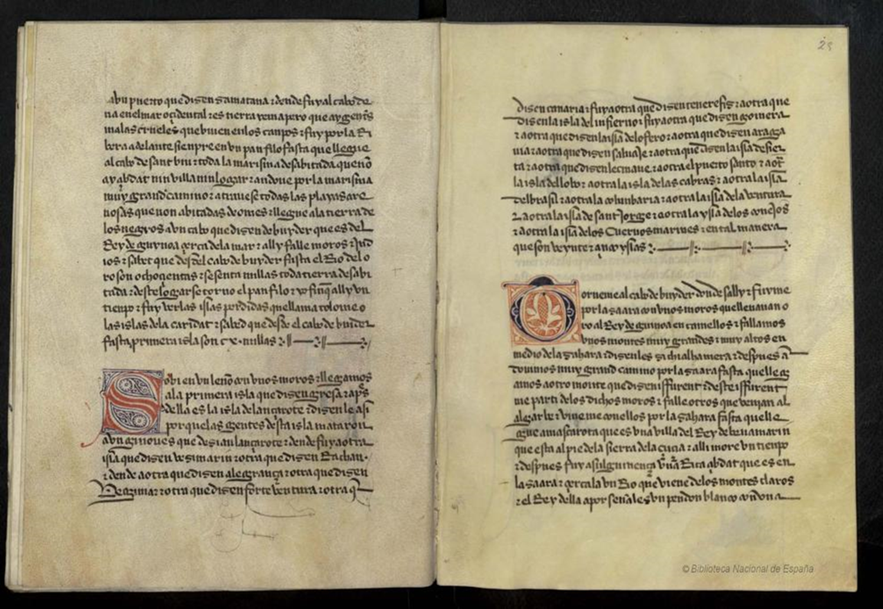 a vn puerto que disen gamatana ⁊ dende fuy al cabo de
na en el mar ocidental ⁊ es tierra yerma pero que ay gentes
malas crueles que biuen en los canpos ⁊ fuy por la Ri
bera adelante sienpre en vn panfilo fasta que llegue
al cabo de sant bin ⁊ toda la marisma desabitada que non
ay çibdat nin villa nin logar ⁊ andoue por la marisma
muy grand camino ⁊ atrauese todas las playas are
nosas que non abitadas de omes ⁊ llegue a la tierra de
los negros a vn cabo que disen de buyder que es del
Rey de guynoa çerca de la mar ⁊ ally falle moros ⁊ jud
ios ⁊ sabet que desdel cabo de buyder fasta el Rio del o
ro son ochoçientas ⁊ sesenta millas toda tierra desabi
tada ⁊ deste logar se torno el panfilo ⁊ yo finque ally vn
tienpo ⁊ fuy ver las islas perdidas que llama tolomeo
las islas dela caridat ⁊ sabed que desde el cabo de buider
fasta primera isla son cx millas
Sobi en vn leño con vnos moros ⁊ llegamos
a la primera isla que disen gresa ⁊ apres
della es la isla de lançarote ⁊ disen le asi
por que las gentes desta isla mataron
a vn ginoues que desian lançarote ⁊ dende fuy a otra
isla que disen vesimarin ⁊ otra que disen Rachan
⁊ dende a otra que disen alegrança ⁊ otra que disen
vegimar ⁊ otra que disen forte ventura ⁊ otra q
disen canaria ⁊ fuy a otra que disen tenerefis ⁊ a otra que
disen la isla del infierno ⁊ fuy a otra que disen gomera
⁊ a otra que disen la isla de lo fero ⁊ a otra que disen araga
uia ⁊ a otra que disen saluaje ⁊ a otra que disen la isla desier
ta ⁊ a otra que disen lecmane ⁊ a otra el puerto santo ⁊ a otr
la isla del lobo ⁊ a otra la isla de las cabras ⁊ a otra la isla
del brasil ⁊ a otra la columbaria ⁊ a otra la isla dela ventura
⁊ a otra la isla de sant Jorge ⁊ a otra la ysla delos conejos
⁊ a otra la isla delos Cueruos marines ⁊ en tal manera
que son veynte ⁊ çinco yslas
Torneme al cabo de buyder donde sally ⁊ fuy me
por la saara con vnos moros que lleuauan o
ro al Rey de guinoa en camellos ⁊ fallamos
vnos montes muy grandes ⁊ muy altos en
medio dela sahara ⁊ disenles ⁊ despues a
douimos muy grand camino por la saara fasta que lleg
amos a otro monte que disen iffurent ⁊ deste iffurent
me parti de los dichos moros ⁊ falle otros que venian al
algarbe ⁊ vine me con ellos por la sahara fasta que lle
gue a mascarota que es vna villa del Rey de benamarin
que esta al pie dela sierra dela cucia ⁊ alli more vn tienpo
⁊ despues fuy a sulgumença vna Rica çibdat que es en
la saara ⁊ çerca la vn Rio que viene de los montes claros
⁊ el Rey della a por señales vn pendon blanco con vna
© Biblioteca Nacional de España